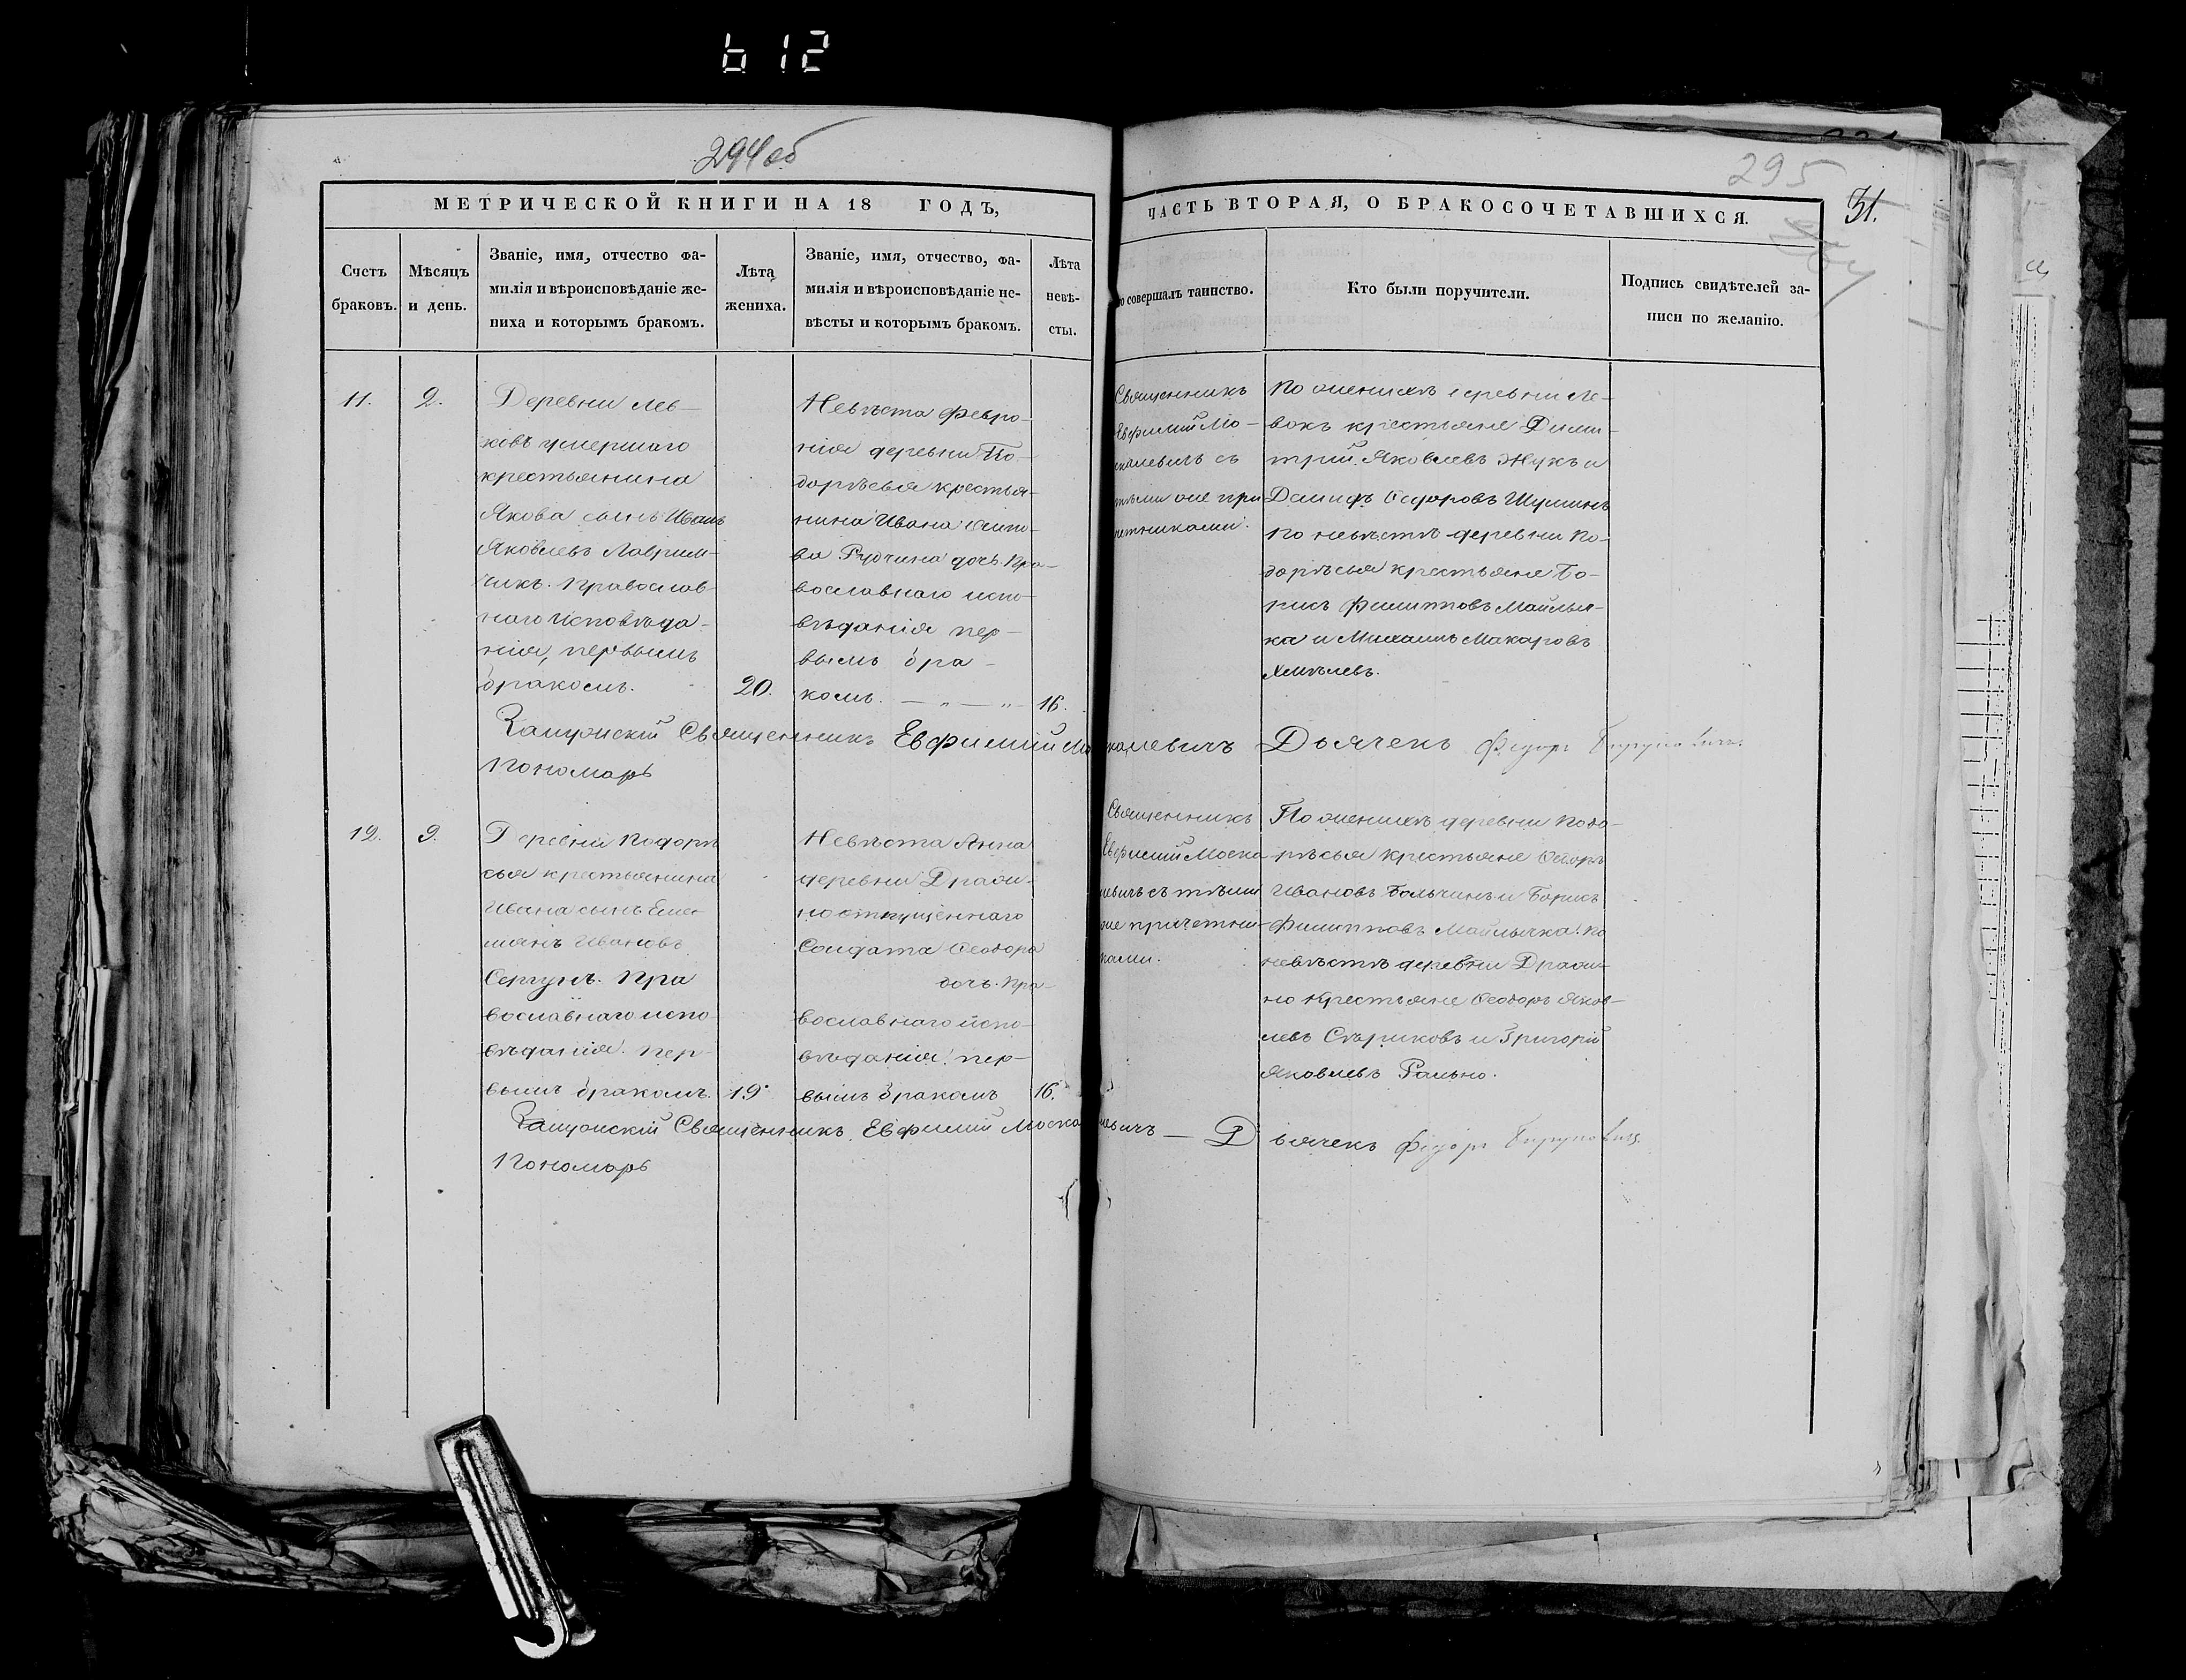 612
294 об
295
31.
МЕТРИЧЕСКОЙ КНИГИ НА 18 ГОДЪ,
ЧАСТЬ ВТОРАЯ, О БРАКОСОЧЕТАВШИХСЯ.
Счетъ
браковъ.
Мѣсяцъ
и день.
Званіе, имя, отчество фа-
милія и вѣроисповѣданіе же-
ниха и которымъ бракомъ.
Лѣта
жениха.
Званіе, имя, отчество, фа-
милія и вѣроисповѣданіе не-
вѣсты и которымъ бракомъ.
Лѣта
невѣ-
сты.
о совершалъ таинство.
Кто были поручители.
Подпись свидѣтелей за-
писи по желанію.
11.
2.
Деревни Лев-
ковъ умершаго
крестьянина
Якова сынъ Иванъ
Яковлевъ Лаврим-
чикъ. Православ-
наго исповѣда-
нія, первымъ
бракомъ.
20.
Невѣста Февро-
нія деревни По-
дорѣсья крестья-
нина Ивана
ва Рудчина дочь. Пра-
вославнаго испо-
вѣданія пер-
вымъ бра-
комъ.
16.
Священникъ
Евфимій Мо-
скалевичъ съ
тѣми же при-
четниками.
По женихѣ деревни Ле-
вокъ крестьяне Дими-
трій Яковлевъ Жукъ и
Демидъ Ѳедоровъ Шуминъ
По невѣстѣ деревни По-
дорѣсья крестьяне Бо-
рисъ Филипповъ Майлыч-
ка и Михаилъ Макаровъ
Хмѣлевъ.
Священникъ Евфимій Москалевичъ Дьячекъ Федоръ
Пономарь
12.
9.
Деревни Подорѣ
сья крестьянина
Ивана сынъ Емел-
іянъ Ивановъ
Сергунъ. Пра
вославнаго испо
вѣданія. Пер-
вымъ бракомъ.
19.
Невѣста Анна
деревни Драги-
но отпущеннаго
Солдата Ѳеодора
дочь. Пра-
вославнаго испо-
вѣданія. пер-
вымъ бракомъ
16.
Священникъ
Евфимій Моска
левичъ съ тѣми
же причетни-
ками.
По женихѣ деревни Подо-
рѣсья крестьяне
Ивановъ и Борисъ
Филипповъ Майлычка. По
невѣстѣ деревни Драги-
но крестьяне Ѳеодоръ Яков-
левъ Стариковъ и Григорій
Яковлевъ
Священникъ Евфимій Москалевичъ — Дьячекъ Федоръ
Пономарь